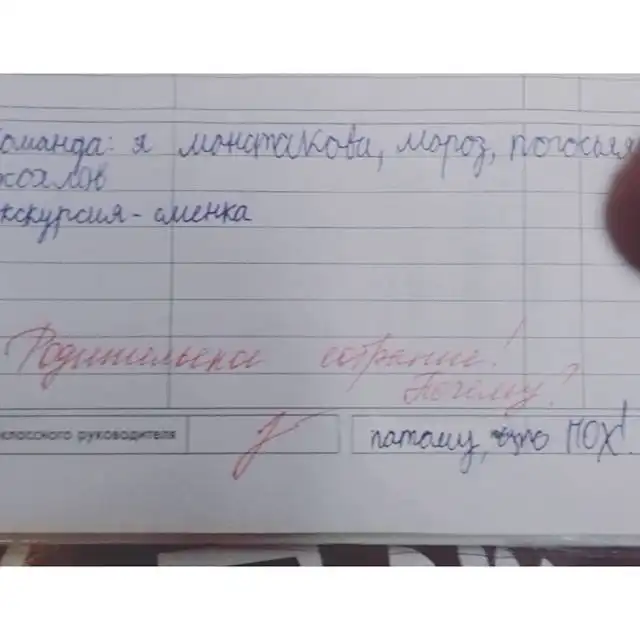 оманда: я монатакова, мороз, погосья
козлов
кскурсия - сменка
Родительское собрание!
Почему?
классного руководителя
патаму, что ПОХ!